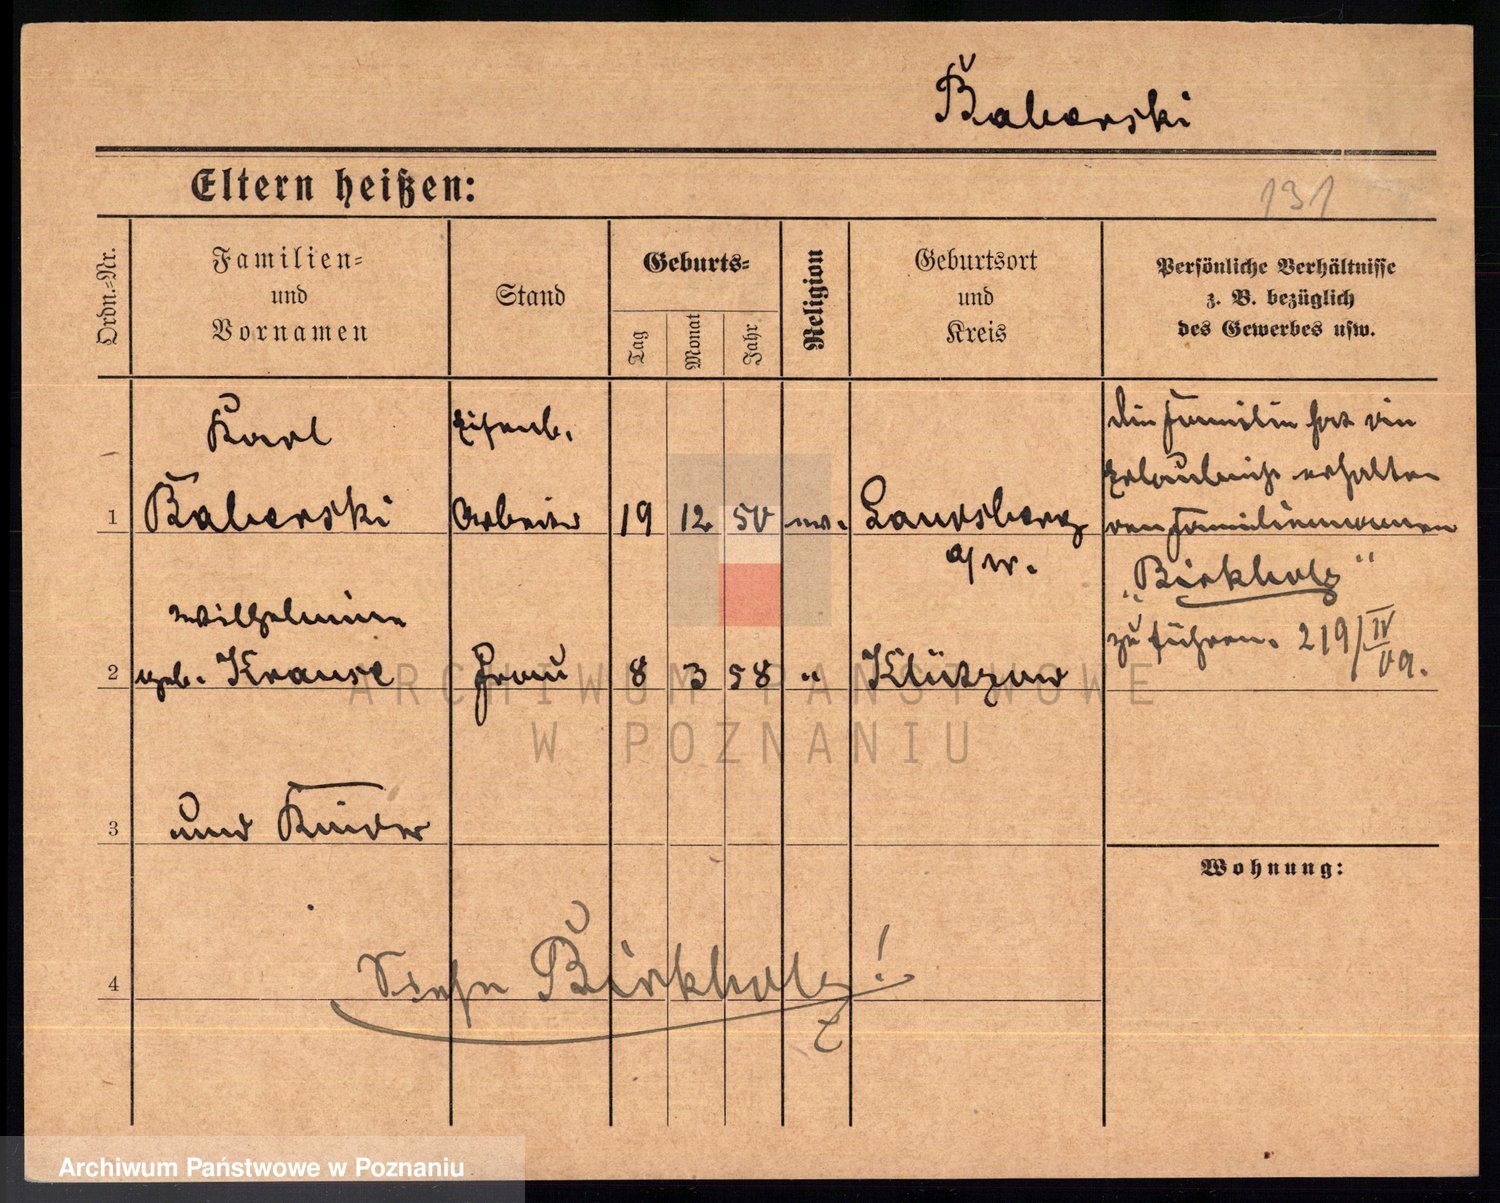 Baberski
Eltern heißen:
131
Ordn.-Nr.
Familien-
und
Vornamen
Stand
Geburts-
Tag
Monat
Jahr
Religion
Geburtsort
und
Kreis
Persönliche Verhältnisse
z. B. bezüglich
des Gewerbes usw.
Karl
Eisenb.
1 Baberski Arbeiter 19 12 50 ev. Landsberg
a/W.
Die Familie hat die
Erlaubniß erhalten
den Familiennamen
„Birkholz"
zu führen. 219/IV
09.
Wilhelmine
2 geb. Krause Frau 8 3 58 " Klützow
3 und Kinder
Wohnung:
4 Siehe Birkholz!
ARCHIWUM PAŃSTWOWE
W POZNANIU
Archiwum Państwowe w Poznaniu